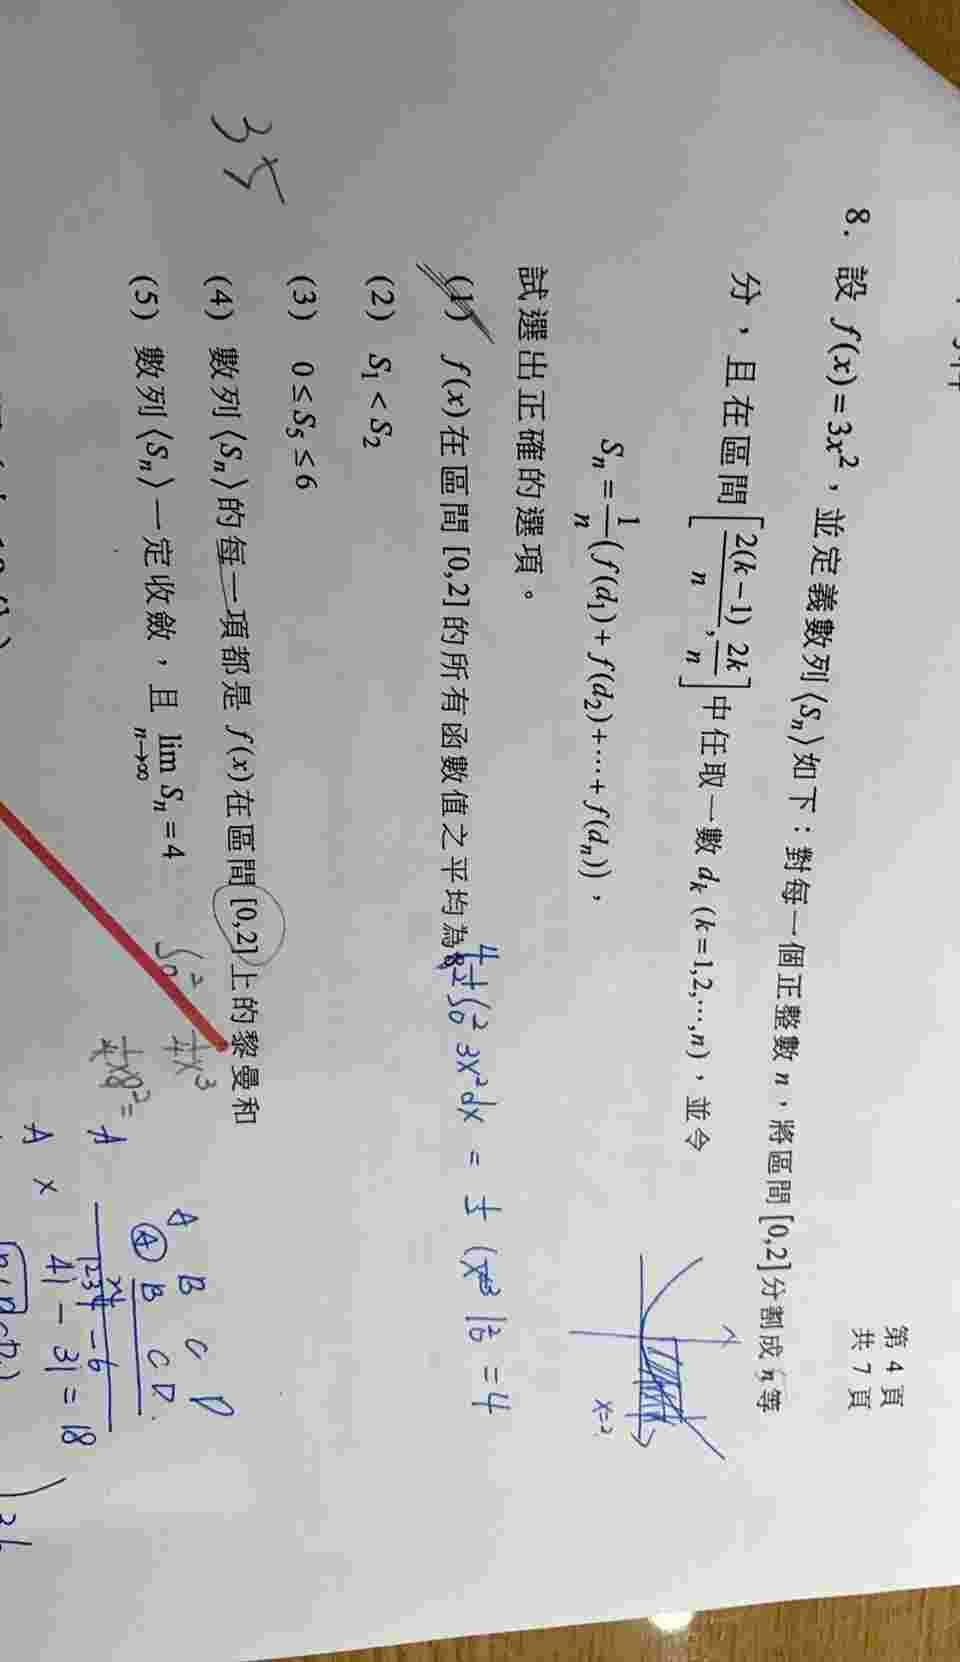 第 4 頁
共 7 頁
8. 設 f(x)=3x²，並定義數列⟨Sₙ⟩如下：對每一個正整數 n，將區間 [0,2] 分割成 n 等
分，且在區間 [2(k−1)/n, 2k/n] 中任取一數 dₖ (k=1,2,⋯,n)，並令
Sₙ = 1/n (f(d₁)+f(d₂)+⋯+f(dₙ))，
x=2
試選出正確的選項。
(1) f(x) 在區間 [0,2] 的所有函數值之平均為
4 ½∫₀² 3x²dx = ½ (x³|₀² = 4
(2) S₁ < S₂
(3) 0 ≤ S₅ ≤ 6
(4) 數列⟨Sₙ⟩的每一項都是 f(x) 在區間 [0,2] 上的黎曼和
(5) 數列⟨Sₙ⟩一定收斂，且 lim n→∞ Sₙ = 4
35
A B C D
A B C D
A
A x
4! − 3! = 18